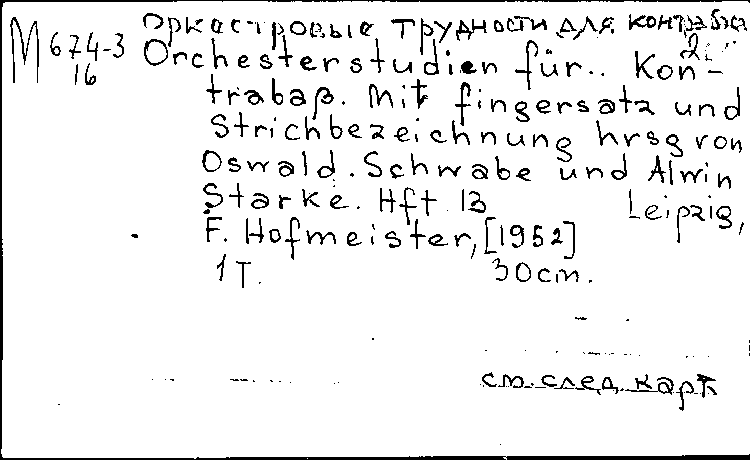 Оркестровые трудности для контрабаса
М 674-3
16
Orchesterstudien für.. Kon-
trabaß. Mit Fingersatz und
Strichbezeichnung hrsg von
Oswald. Schwabe und Alwin
Starke. Hft 13 Leipzig,
F. Hofmeister, [1952]
1 T. 30 cm.
см. след. карт